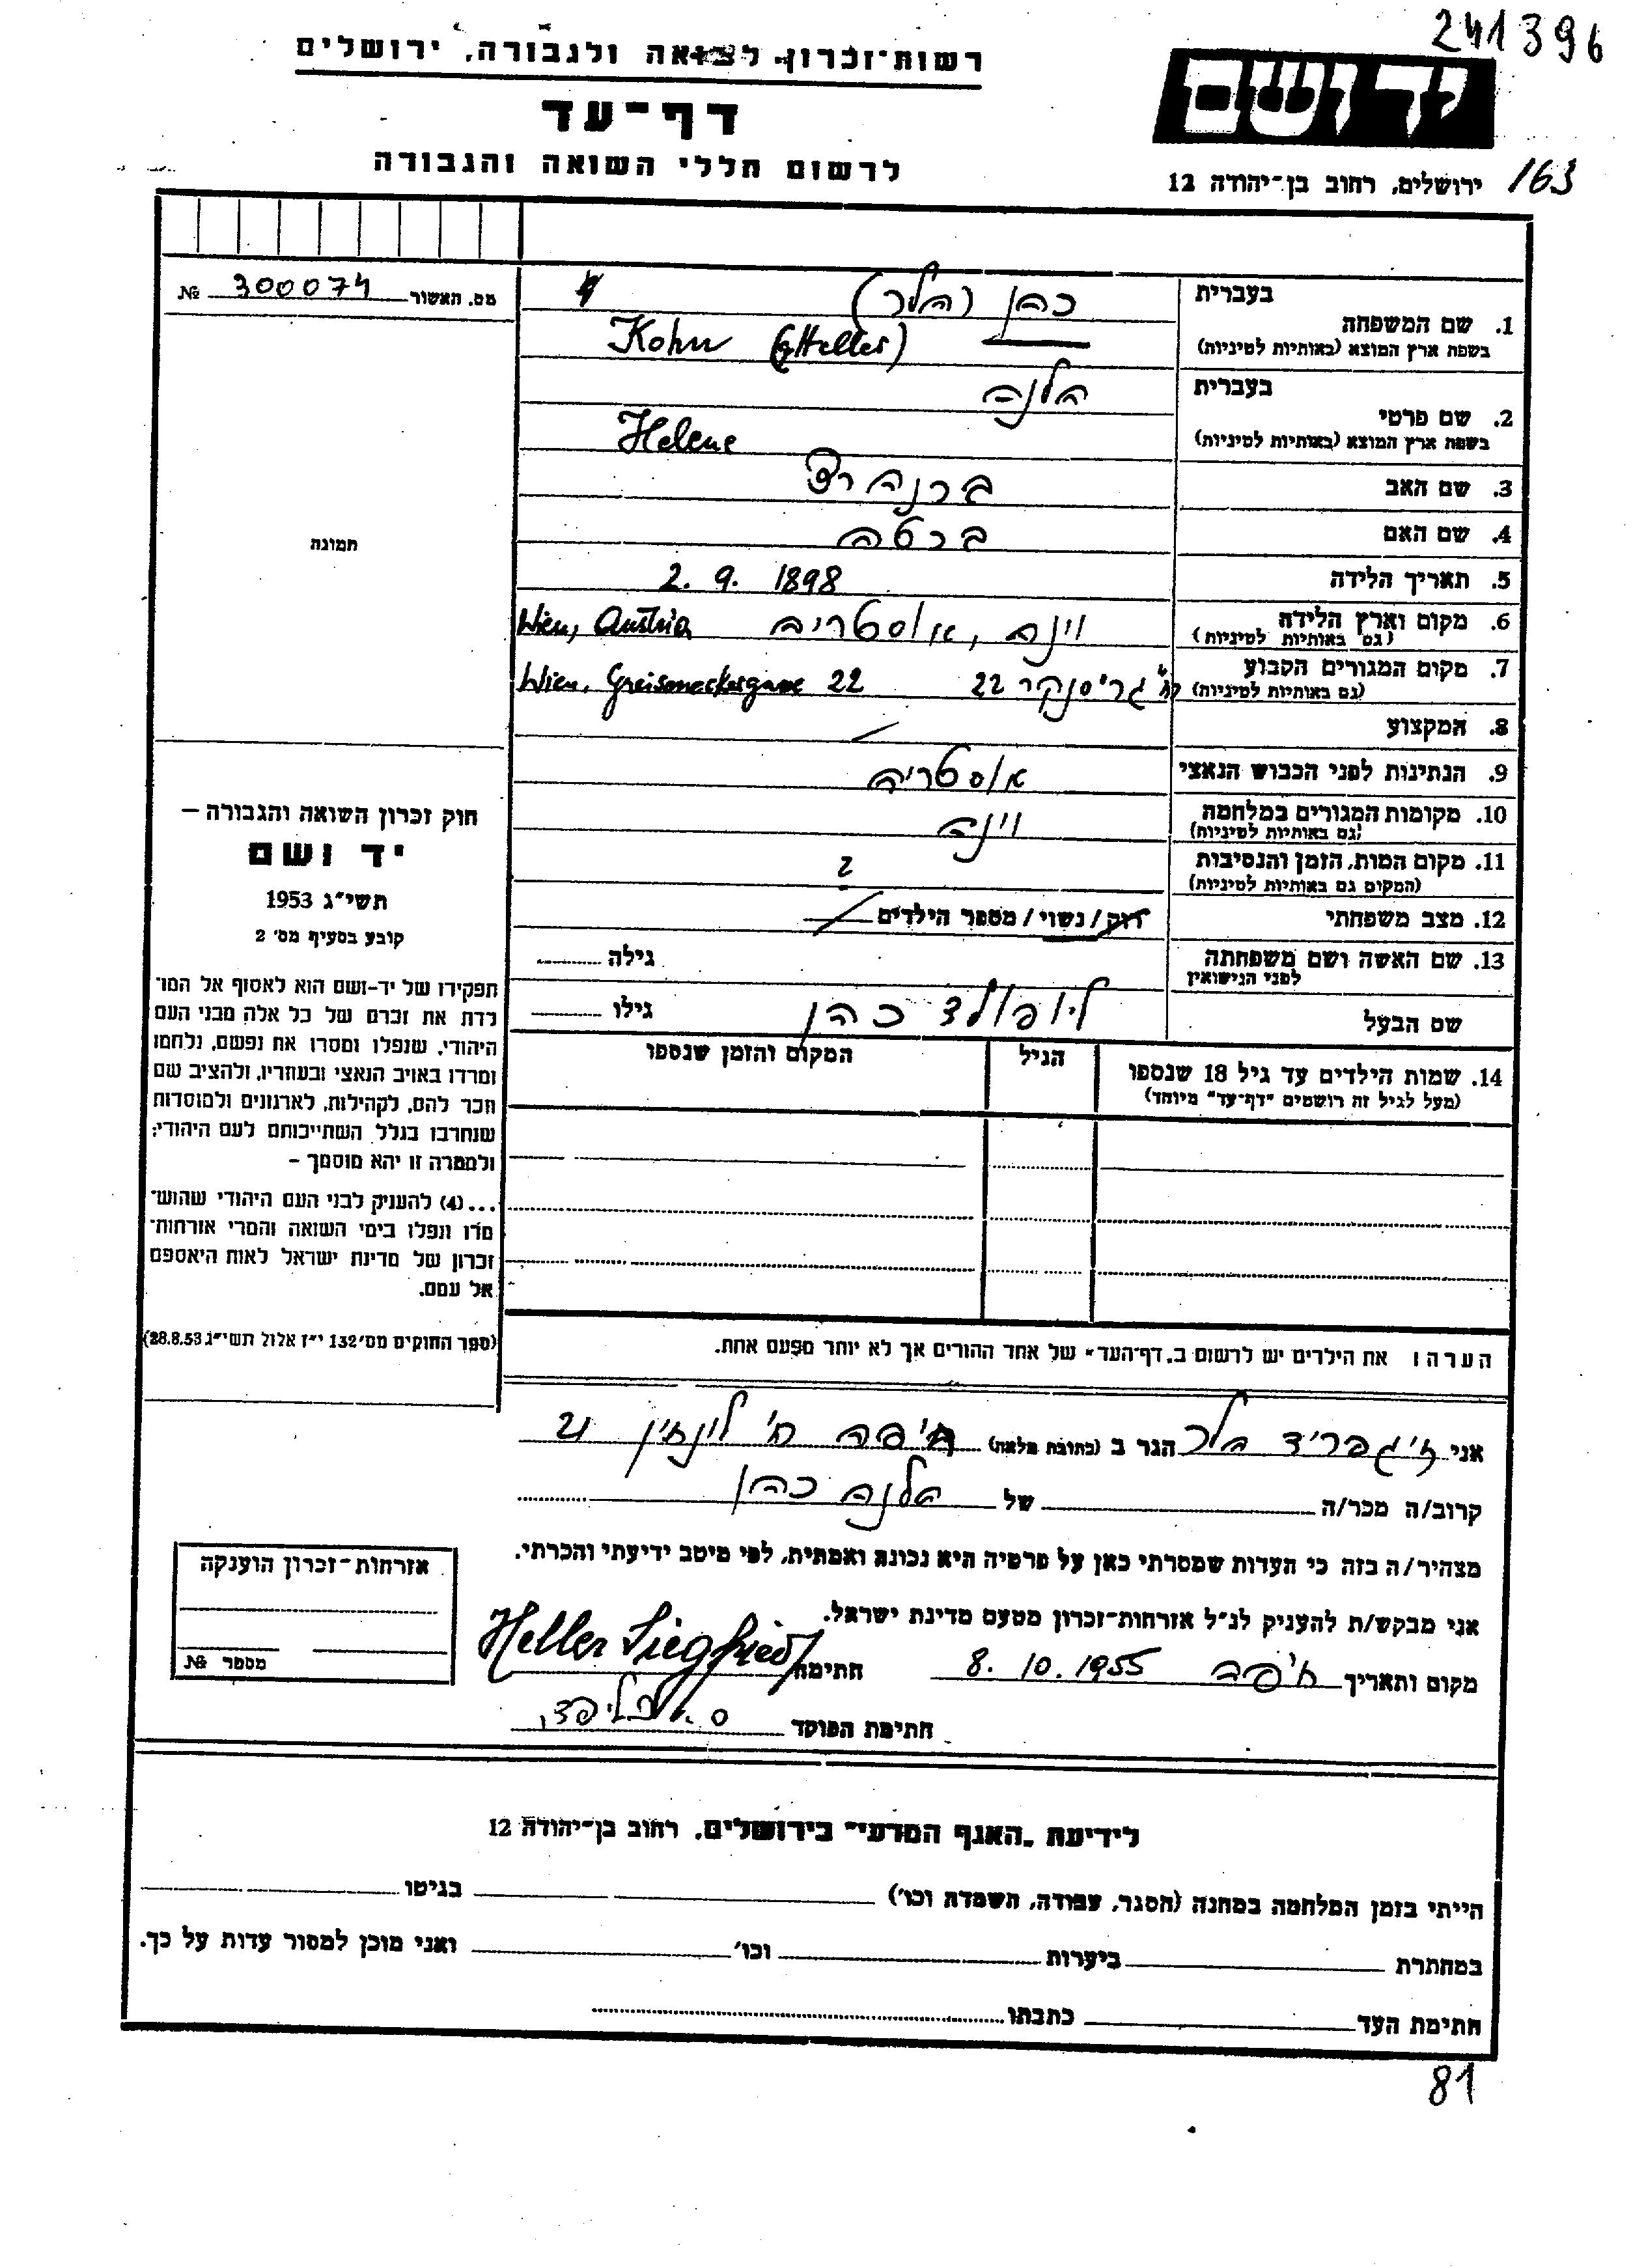 241396
רשות־זכרון לשואה ולגבורה, ירושלים
דף־עד
לרשום חללי השואה והגבורה
ידושם
ירושלים, רחוב בן־יהודה 12
163
מס. האשור 300074 №
תמונה
1. שם המשפחה
בעברית כהן (הלר)
בשפת ארץ המוצא (באותיות לטיניות) Kohn (Heller)
2. שם פרטי
בעברית הלנה
בשפת ארץ המוצא (באותיות לטיניות) Helene
3. שם האב ברנהרד
4. שם האם ברטה
5. תאריך הלידה 2. 9. 1898
6. מקום וארץ הלידה וינה, אוסטריה Wien, Austria
(גם באותיות לטיניות)
7. מקום המגורים הקבוע
(גם באותיות לטיניות) 22 Wien, 22
8. המקצוע /
9. הנתינות לפני הכבוש הנאצי אוסטריה
10. מקומות המגורים במלחמה וינה
(גם באותיות לטיניות)
11. מקום המות, הזמן והנסיבות ?
(המקום גם באותיות לטיניות)
12. מצב משפחתי רוק/נשוי/מספר הילדים /
13. שם האשה ושם משפחתה גילה
לפני הנישואין
שם הבעל ליופולד כהן גילו
14. שמות הילדים עד גיל 18 שנספו הגיל המקום והזמן שנספו
(מעל לגיל זה רושמים "דף־עד" מיוחד)
הערה ו את הילדים יש לרשום ב„דף־העד" של אחד ההורים אך לא יותר מפעם אחת.
חוק זכרון השואה והגבורה —
יד ושם
תשי"ג 1953
קובע בסעיף מס' 2
תפקידו של יד-ושם הוא לאסוף אל המו־
לדת את זכרם של כל אלה מבני העם
היהודי, שנפלו ומסרו את נפשם, נלחמו
ומרדו באויב הנאצי ובעוזריו, ולהציב שם
וזכר להם, לקהילות, לארגונים ולמוסדות
שנחרבו בגלל השתייכותם לעם היהודי;
ולמטרה זו יהא מוסמך —
...(4) להעניק לבני העם היהודי שהוש־
מדו ונפלו בימי השואה והמרי אזרחות־
זכרון של מדינת ישראל לאות היאספם
אל עמם.
(ספר החוקים מס' 132 י"ז אלול תשי"ג 28.8.53)
אני זיגפריד הלר הגר ב (כתובת מלאה) חיפה רח' 21
קרוב/ה מכר/ה של הלנה כהן
מצהיר/ה בזה כי העדות שמסרתי כאן על פרטיה היא נכונה ואמתית, לפי מיטב ידיעתי והכרתי.
אני מבקש/ת להעניק לנ"ל אזרחות־זכרון מטעם מדינת ישראל.
מקום ותאריך חיפה 8. 10. 1955 חתימה Heller Siegfried
חתימת הפוקד
אזרחות־זכרון הוענקה
מספר №
לידיעת „האגף המדעי" בירושלים, רחוב בן־יהודה 12
הייתי בזמן המלחמה במחנה (הסגר, עבודה, השמדה וכו') בגיטו
במחתרת ביערות וכו' ואני מוכן למסור עדות על כך.
חתימת העד כתבתו
81